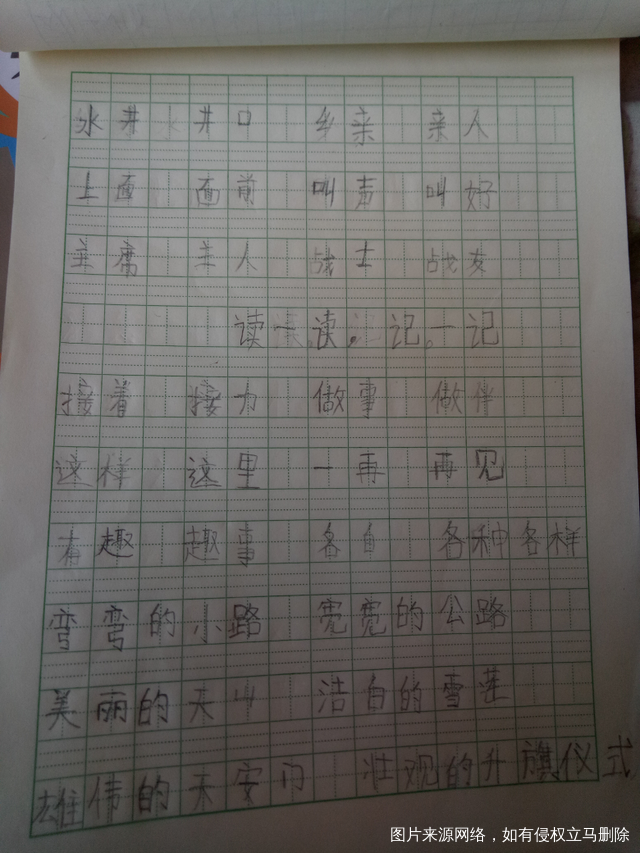 水井 井口 乡亲 亲人
上面 面前 叫声 叫好
主席 主人 战士 战友
读一读,记一记
接着 接力 做事 做伴
这样 这里 一再 再见
有趣 趣事 各自 各种各样
弯弯的小路 宽宽的公路
美丽的天山 洁白的雪莲
雄伟的天安门 壮观的升旗仪式
图片来源网络，如有侵权立马删除